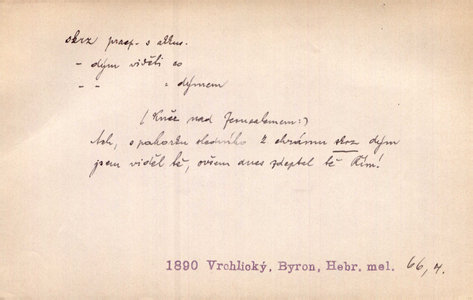 skrz praep. s akkus.
- dým viděti co
- - " dýmem
(Kněz nad Jerusalemem:)
Ach, s pahorku sledního z chrámu skrz dým
jsem viděl tě, ovšem dnes zdeptal tě Řím!
1890 Vrchlický, Byron, Hebr. mel. 66,